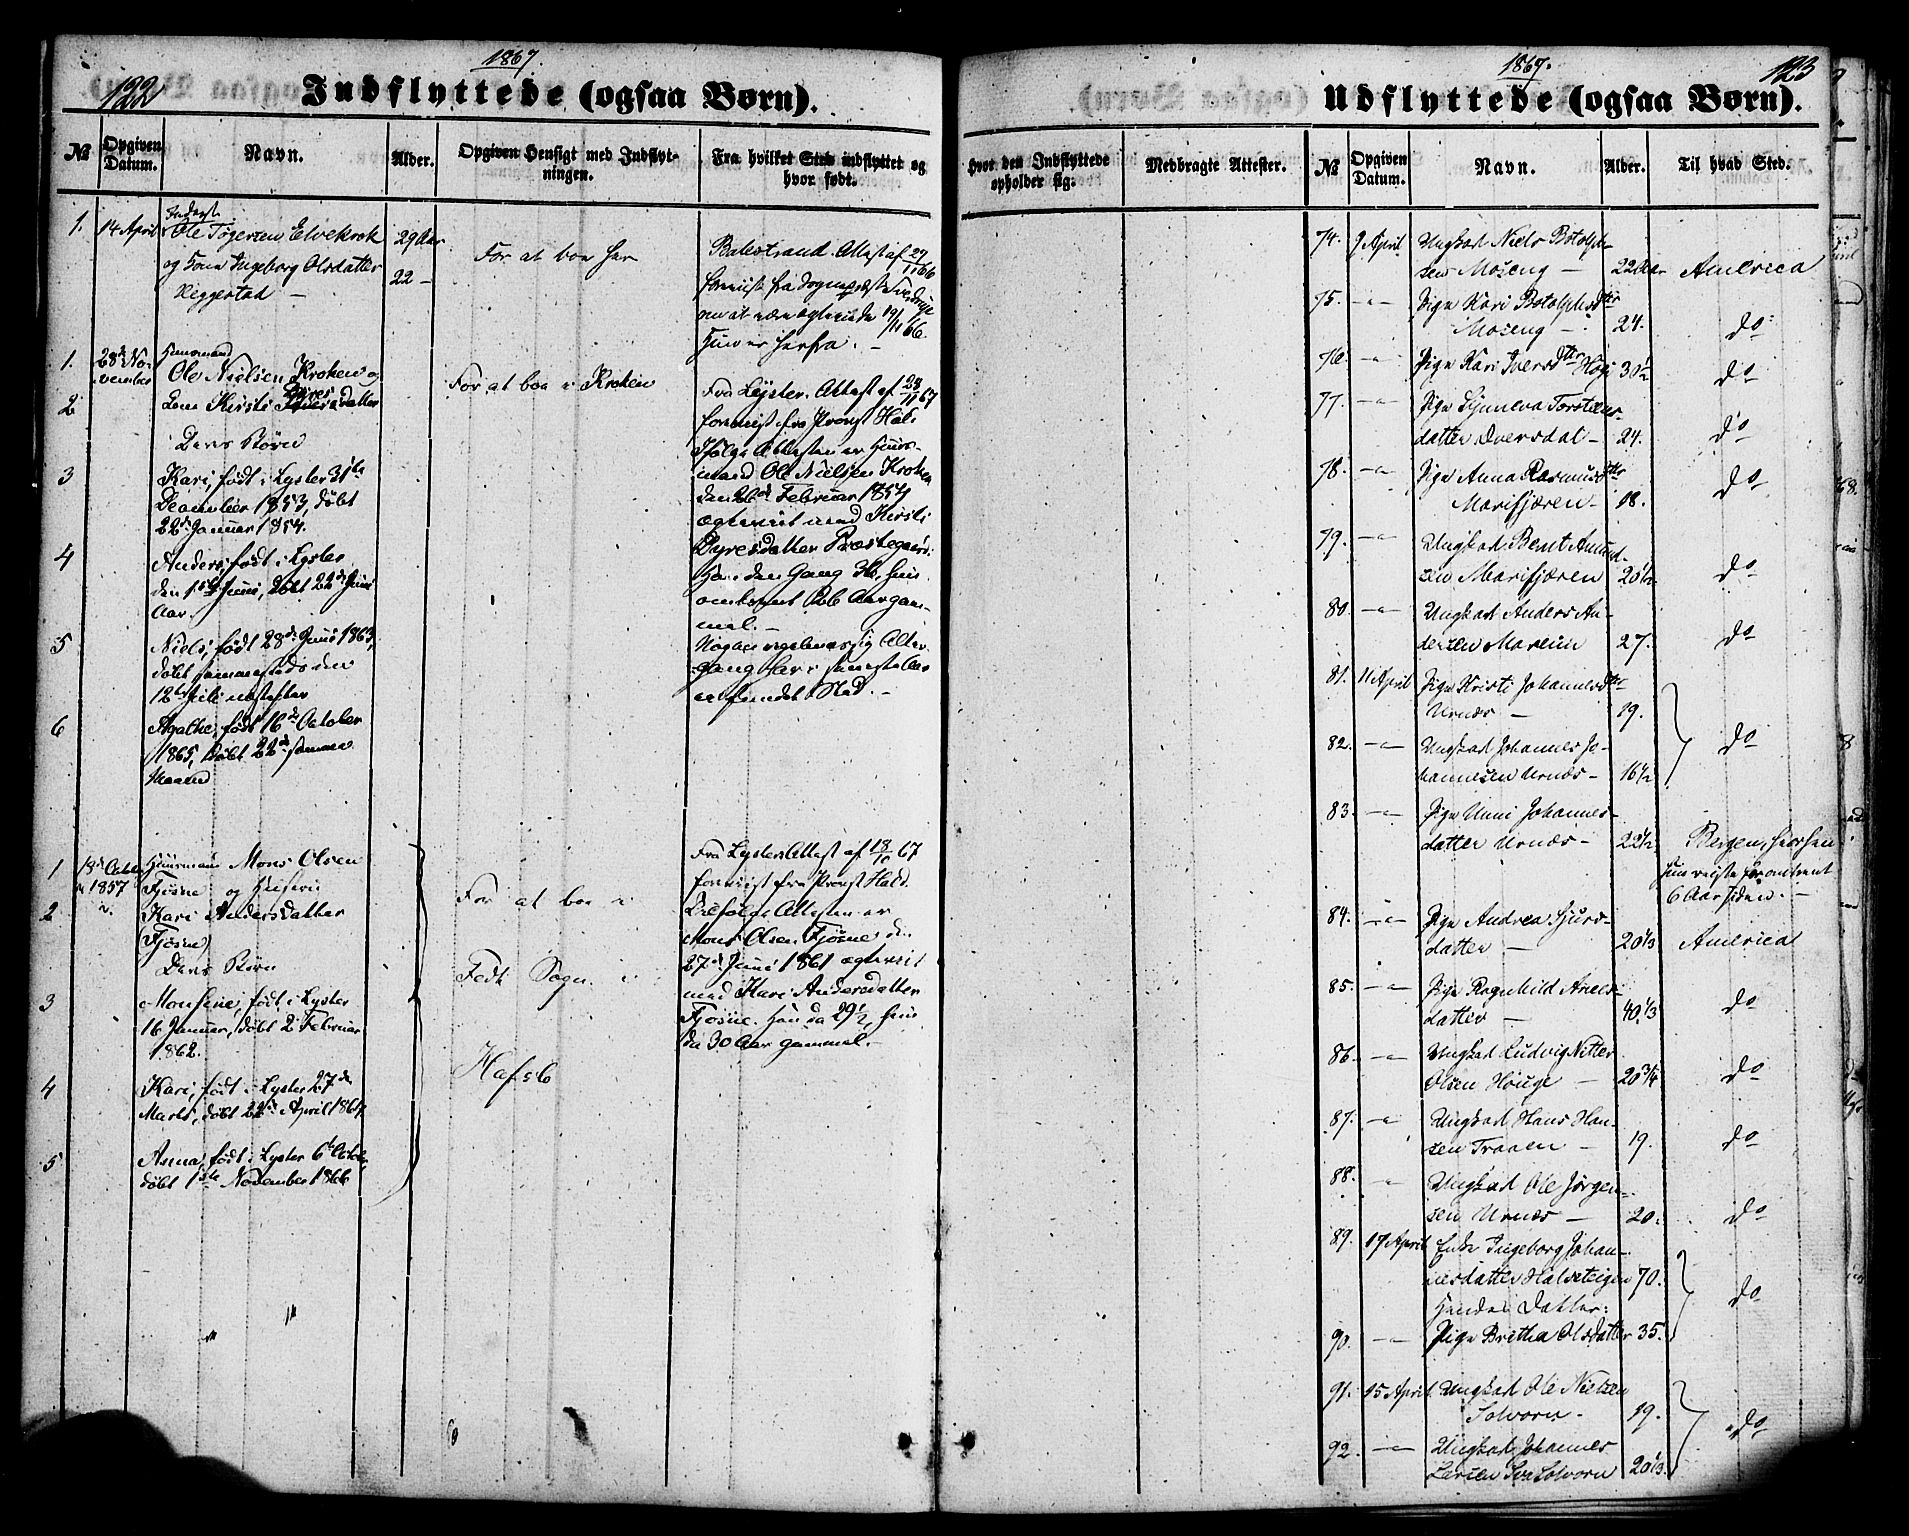 1867.
122
Indflyttede (ogsaa Børn).
№
Opgiven Datum.
Navn.
Alder.
Opgiven Hensigt med Indflyt-
ningen.
Fra hvilket Sted indflyttet og
hvor født.
1.
14 April
Inderst
Ole Tøgersen Elvekrok
29 Aar
og Kone Ingeborg Olsdatter
22 —
Heggestad —
For at boe her
Balestrand. Attest af 29/11 66
om at være ægteviede 19/11 66.
Hun er herfra. —
1.
28de No-
vember
Huusmand
Ole Nielsen Kroken og
2
Kone Kirsti Dyresdatter
Deres Børn
For at boe i Kroken
Fra Lyster. Attest af 28/11 67
forevist fra Provst Hald.
Ifølge Attesten er Huus-
mand Ole Nielsen Kroken
den 26de Februar 1854
ægteviet med Kirsti
Dyresdatter Præstegaard.
Han den Gang 36, hun
omtrent 26 Aar gam-
mel. —
3
Kari, født i Lyster 31te
December 1853, døbt
22de Januar 1854.
4
Anders, født i Lyster
den 1ste Juni, døbt 22de Juni
Aar.
5
Niels, født 28de Juni 1863,
døbt sammesteds den
12te Juli næstefter
6
Agathe, født 16de October
1865, døbt 22de samme
Maaned
1
18de Octob
1857
Huusmand Mons Olsen
Fjøsne og Hustru
2
Kari Andersdatter
(Fjøsne)
Deres Børn
For at boe i
Feds Sogn i
Hafslo
Fra Lyster Attest af 18/10 67
forevist fra Provst Hald.
Ifølge Attesten er
Mons Olsen Fjøsne den
27de Juni 1861 ægteviet
med Kari Andersdatter
Fjøsne. Han da 29½, hun
da 30 Aar gammel. —
3
Monsine, født i Lyster
16 Januar, døbt 2 Februar
1862.
4
Kari, født i Lyster 27de
Marts, døbt 22de April 1864.
5
Anna, født i Lyster 6te Octob.
døbt 1ste November 1866
1867.
123
Udflyttede (ogsaa Børn).
Hvor den Indflyttede
opholder sig.
Medbragte Attester.
№
Opgiven Datum.
Navn.
Alder.
Til hvad Sted.
74. 9 April Ungkarl Niels Botolph-
sen Moseng — 22 Aar America
75. —"— Pige Kari Botolphsdtr
Moseng — 24. do
76. —"— Pige Kari Iversdtr Høgi 30½ do
77. —"— Pige Synneva Torstens-
datter Qversdal — 24. do
78. —"— Pige Anna Rasmusdtr
Marifjæren — 18. do
79. —"— Ungkarl Bernt Amund-
sen Marifjæren 20½ do
80. —"— Ungkarl Anders An-
dersen Moreim 27. do
81. 11 April Pige Kristi Johannesdtr
Urnæs — 19.
82. —"— Ungkarl Johannes Jo-
hannesen Urnæs — 16½ do
83. —"— Pige Unni Johannes-
datter Urnæs — 22½ Bergen, hvorhen
hun reiste for omtrent
6 Aar siden. —
84. —"— Pige Andrea Sjurs-
datter — 20⅓ America
85. —"— Pige Ragnhild Arnes-
datter — 40⅓ do
86. —"— Ungkarl Ludvig Nitter
Olsen Houge — 20¾ do
87. —"— Ungkarl Hans Han-
sen Traaen — 19. do
88. —"— Ungkarl Ole Jørgen-
sen Urnæs — 20. do
89. 17 April Enke Ingeborg Johan-
nesdatter Halveteigen 70.
Hendes Datter: do
90. —"— Pige Brita Olsdatter 35.
91. 15 April Ungkarl Ole Nielsen
Solvorn — 19. do
92. —"— Ungkarl Johannes
Larsen Solvorn 20⅓.